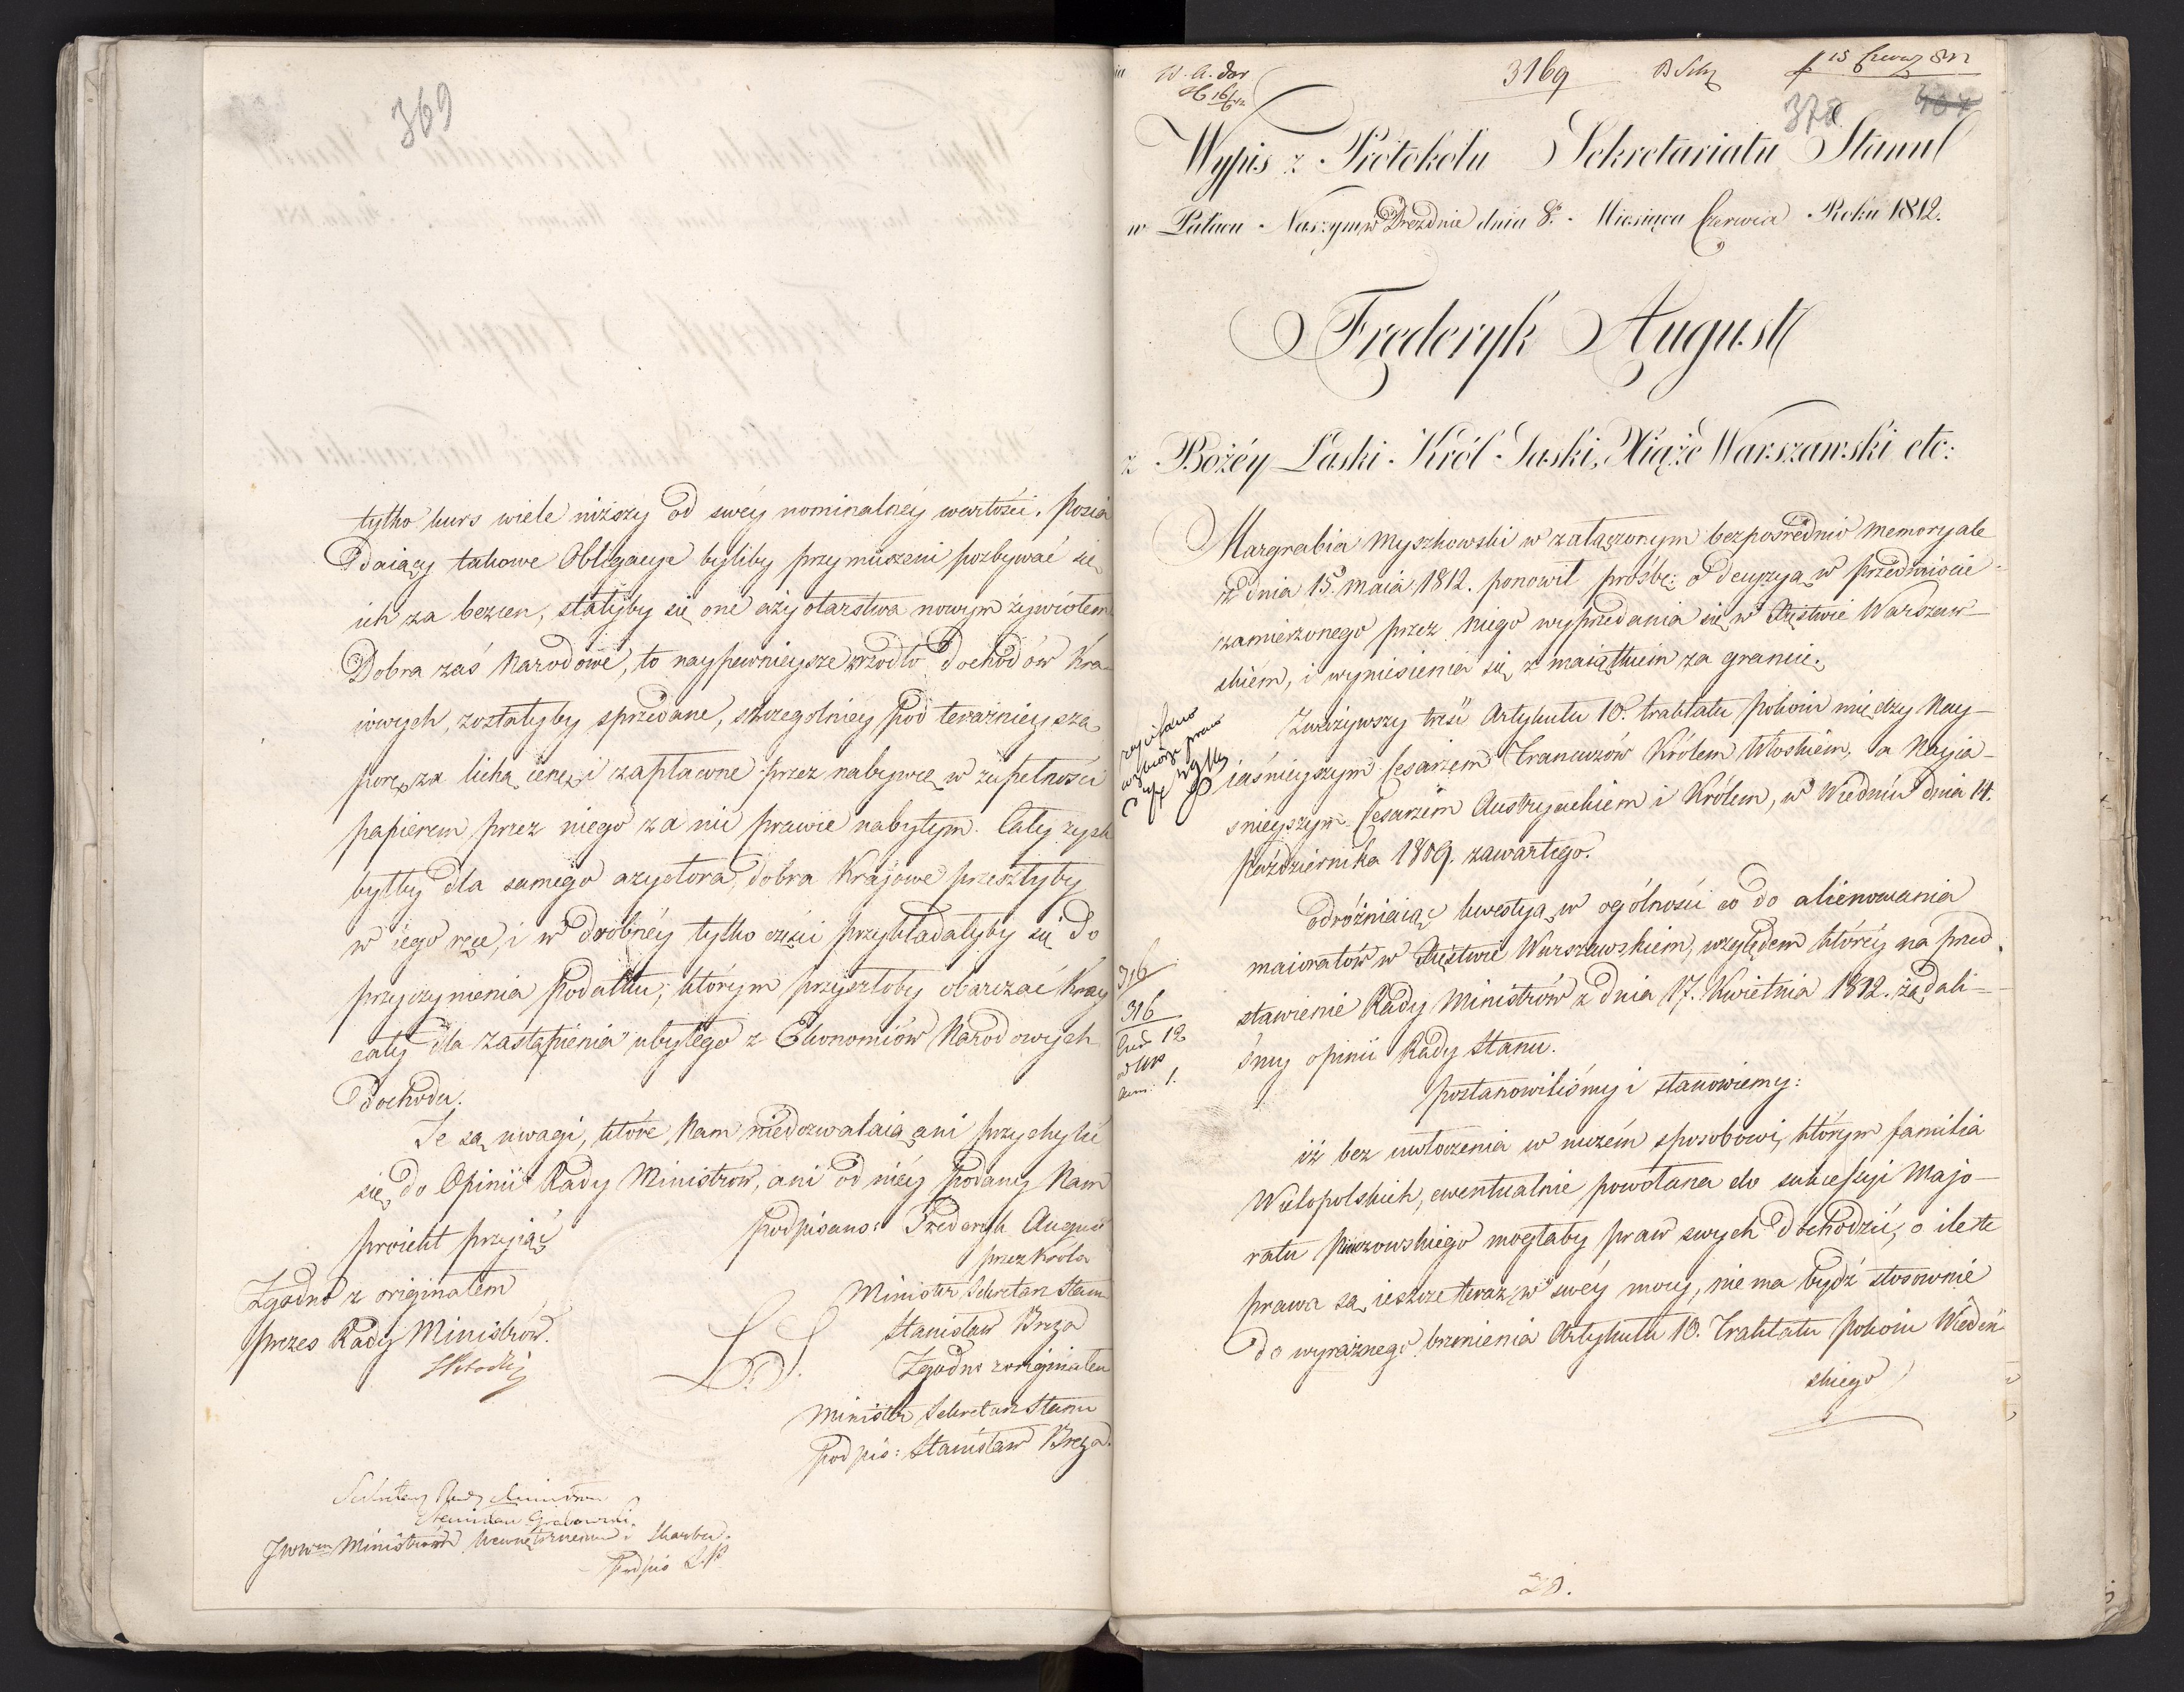 369
tylko kurs wiele niższy od swéy nominalnéy wartości. Posia
daiący takowe Obligacye byliby przymuszeni pozbywać się
ich za bezcen, stałyby się one ażyotarstwa nowym żywiołem
Dobra zaś Narodowe, to naypewnieysze źrzodło dochodów Kra
iowych, zostałyby sprzedane, szczególniey pod teraźnieyszą
porę, za lichą cenę, i zapłacone przez nabywcę w zupełności
papierem przez niego za nic prawie nabytym. Cały zysk
byłby dla samego azyotora, dobra Krajowe przeszłyby
w iego ręce, i w drobnéy tylko części przykładałyby się do
przyczynienia Podatku, którym przyszłoby obarczać Kray
cały dla zastąpienia ubyłego z Ekonomiów Narodowych
dochodu.
Te są uwagi, które Nam niedozwalaią ani przychylić
się do Opinii Rady Ministrów, ani od niéy podany Nam
proiekt przyiąć
podpisano: Frederyk August
przez Króla
Minister Sekretarz Stanu
Stanisław Breza
Zgodno z originałem
Minister Sekretarz Stanu
podpis: Stanisław Breza.
L. S.
Zgodno z originałem
Prezes Rady Ministrów.
Sekretarz Rady Ministrów
Stanisław Grabowski.
JWWm Ministrom Wewnętrznemu i Skarbu.
Podpis
3169
15 Czerw 812
378
Wypis z Protokołu Sekretariatu Stanu
w Pałacu Naszym w Dreznie dnia 8. Miesiąca Czerwca Roku 1812.
Frederyk August
z Bożéy Łaski Król Saski, Xiąże Warszawski etc:
Margrabia Myszkowski w załączonym bezpośrednio memoryale
z dnia 15. Maia 1812. ponowił prośbę o decyzyą w przedmiocie
zamierzonego przez niego wyprzedania się w Xięstwie Warszaw-
skiém, i wyniesienia się z maiątkiem za granicę.
Zważywszy treść Artykułu 10. traktatu pokoiu między Nay-
iaśnieyszym Cesarzem Francuzów Królem Włoskiem, a Nayia-
śnieyszym Cesarzém Austryackiem i Królem, w Wiedniu dnia 14.
Października 1809. zawartego.
odróżniaiąc kwestyą w ogólności co do alienowania
maioratów w Xięstwie Warszawskiem, względem któréy na przed-
stawienie Rady Ministrów z dnia 17. Kwietnia 1812. żądali-
śmy opinii Rady Stanu.
postanowiliśmy i stanowiemy:
iż bez uwłoczenia w niczém sposobowi, którym familia
Wielopolskich, ewentualnie powołana do sukcessyi Majo-
ratu Pinczowskiego mogłaby praw swych dochodzić, o ile te
prawa są ieszcze teraz w swéy mocy, nie ma bydź stosownie
do wyraźnego brzmienia Artykułu 10. Traktatu Pokoiu Wiedeń
skiego
316
316